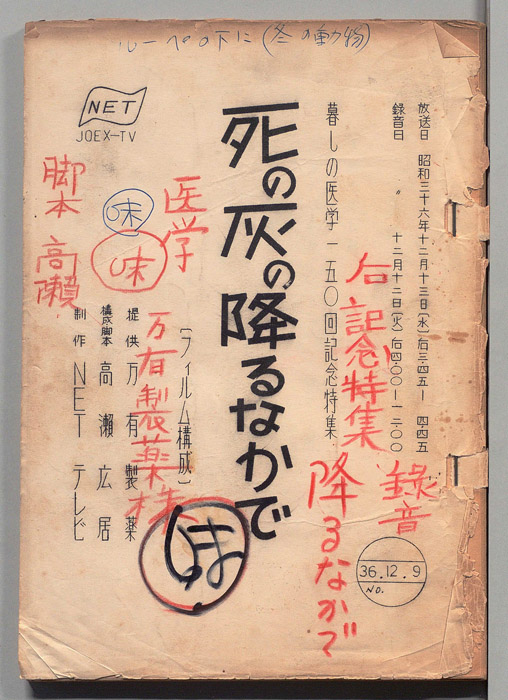 ルーペの下に(冬の動物)
放送日 昭和三十六年十二月十三日(水)后三・四五ー四・四五
録音日 〃 十二月十二日(火)后四・〇〇ー一二・〇〇
暮しの医学一五〇回記念特集
死の灰の降るなかで
[フィルム構成]
提供 万有製薬
構成脚本 高瀬広居
制作 NETテレビ
NET
JOEX-TV
記念特集
録音
降るなかで
医学
万有製薬様
味
味
脚本 高瀬
36.12.9
NO.